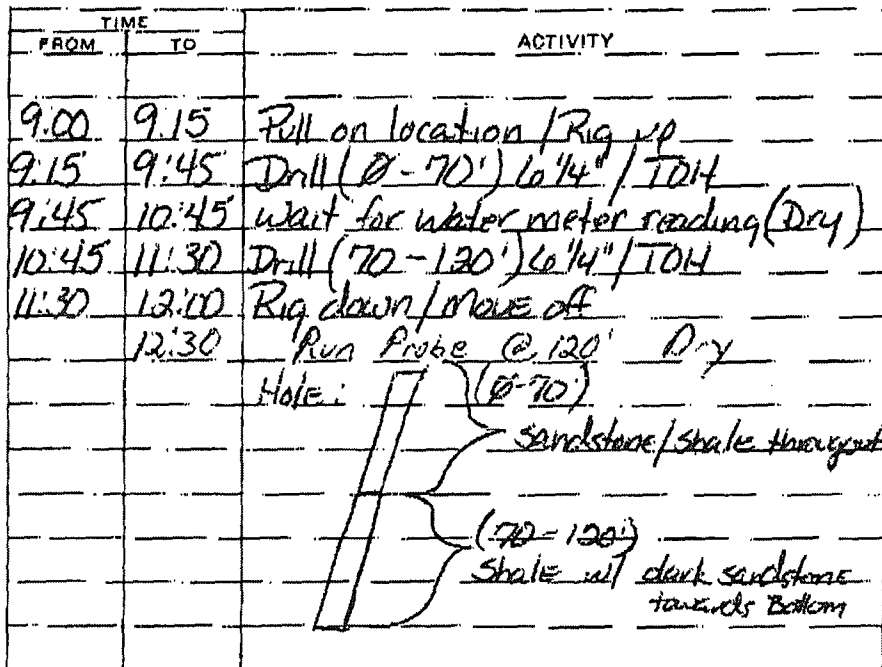 TIME
FROM TO ACTIVITY
9:00 9:15 Pull on location / Rig up
9:15 9:45 Drill (Ø-70') 6 1/4" / TOH
9:45 10:45 Wait for water meter reading (Dry)
10:45 11:30 Drill (70-120') 6 1/4" / TOH
11:30 12:00 Rig down / Move off
12:30 Run Probe @ 120' Dry
Hole: (Ø-70')
Sandstone/Shale throughout
(70-120')
Shale w/ dark sandstone
towards Bottom